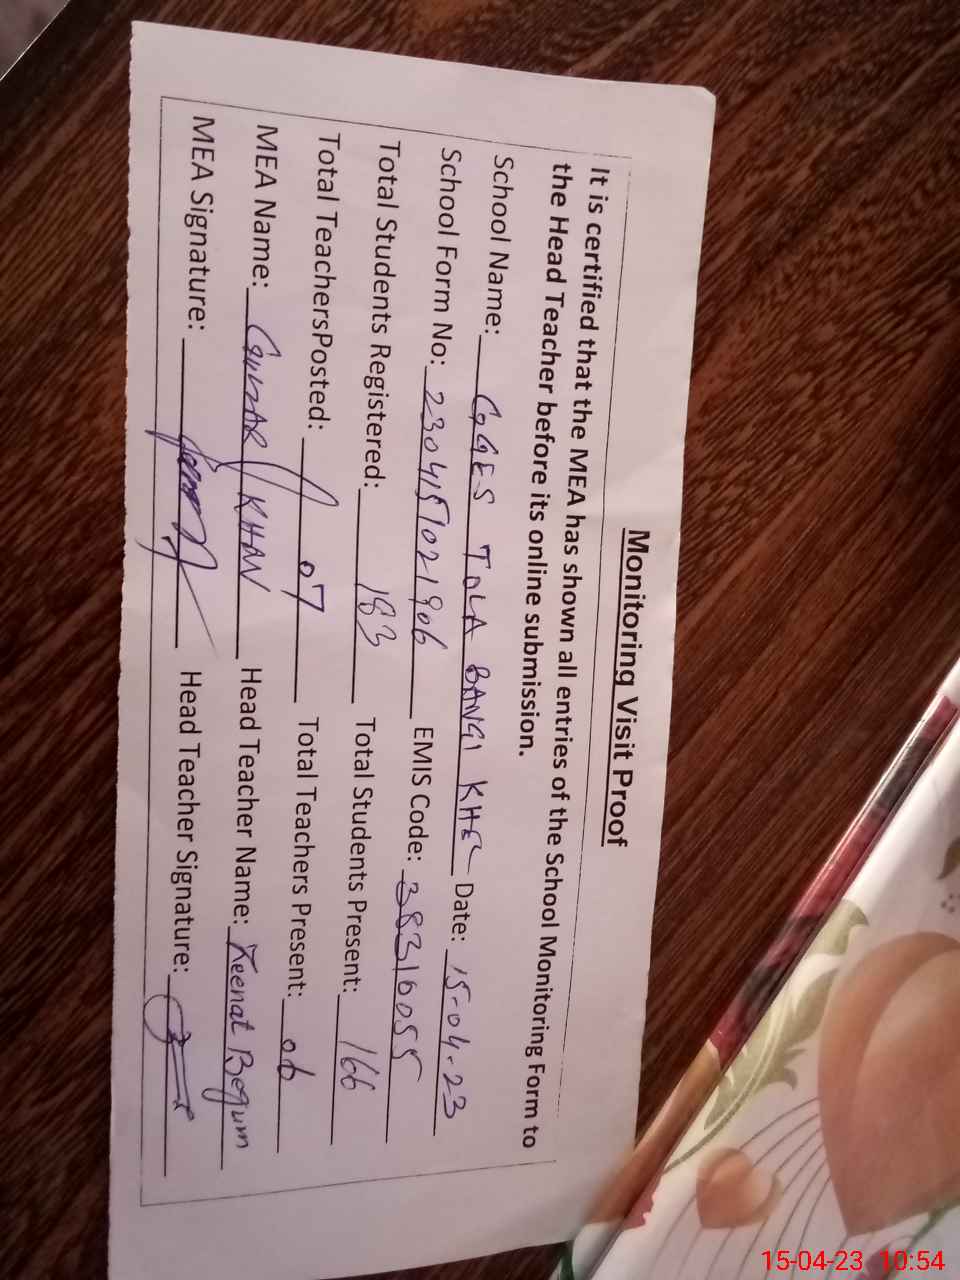 Monitoring Visit Proof
It is certified that the MEA has shown all entries of the School Monitoring Form to
the Head Teacher before its online submission.
School Name: GGES TOLA BANGI KHEL Date: 15-04-23
School Form No: 2304151021906 EMIS Code: 38310055
Total Students Registered: 183 Total Students Present: 166
Total TeachersPosted: 07 Total Teachers Present: 06
MEA Name: GULZAR KHAN Head Teacher Name: Zeenat Begum
MEA Signature: Head Teacher Signature:
15-04-23 10:54